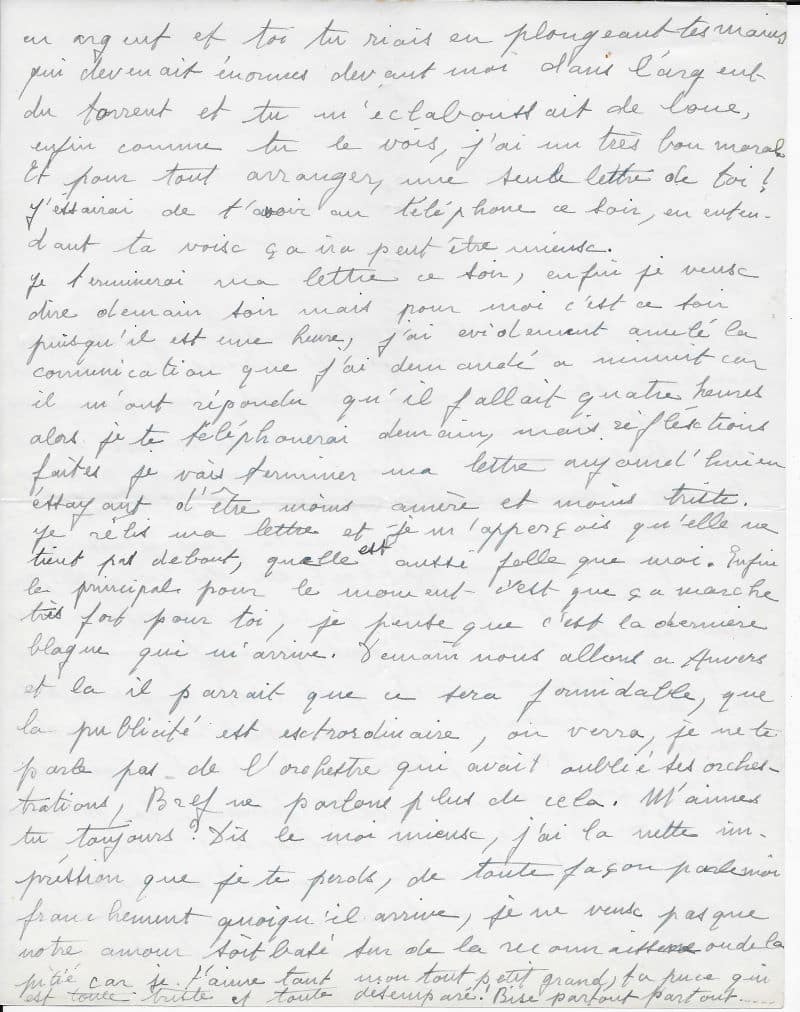 en argent et toi tu riais en plongeant tes mains
qui devenait énormes devant moi dans l'argent
du torrent et tu m'éclaboussait de boue,
enfin comme tu le vois, j'ai un très bon moral
Et pour tout arranger, une seule lettre de toi!
J'éssairai de t'avoir au téléphone ce soir, en enten-
dant ta voisc ça ira peut être mieusc.
Je terminerai ma lettre ce soir, enfin je veusc
dire demain soir mais pour moi c'est ce soir
puisqu'il est une heure, j'ai evidement annulé la
communication que j'ai demandé a minuit car
il m'ont répondu qu'il fallait quatre heures
alors je te téléphonerai demain, mais réfléctions
faites je vais terminer ma lettre aujourd'hui en
éssayant d'être moins amère et moins triste.
Je rélis ma lettre et je m'apperçois qu'elle ne
tient pas debout, quelle est aussi folle que moi. Enfin
le principal pour le moment c'est que ça marche
très fort pour toi, je pense que c'est la dernière
blague qui m'arrive. Demain nous allons a Anvers
et la il parrait que ce sera formidable, que
la publicité est esctraordinaire, on verra, je ne te
parle pas de l'orchestre qui avait oublié ses orches-
trations, Bref ne parlons plus de cela. M'aimes
tu toujours? Dis le moi mieusc, j'ai la nette im-
préssion que je te perds, de toute façon parle moi
franchement quoiqu'il arrive, je ne veusc pas que
notre amour soit basé sur de la reconnaissance ou de la
pitié car je t'aime tant mon tout petit grand, ta puce qui
est toute triste et toute désemparé! Bise partout partout......